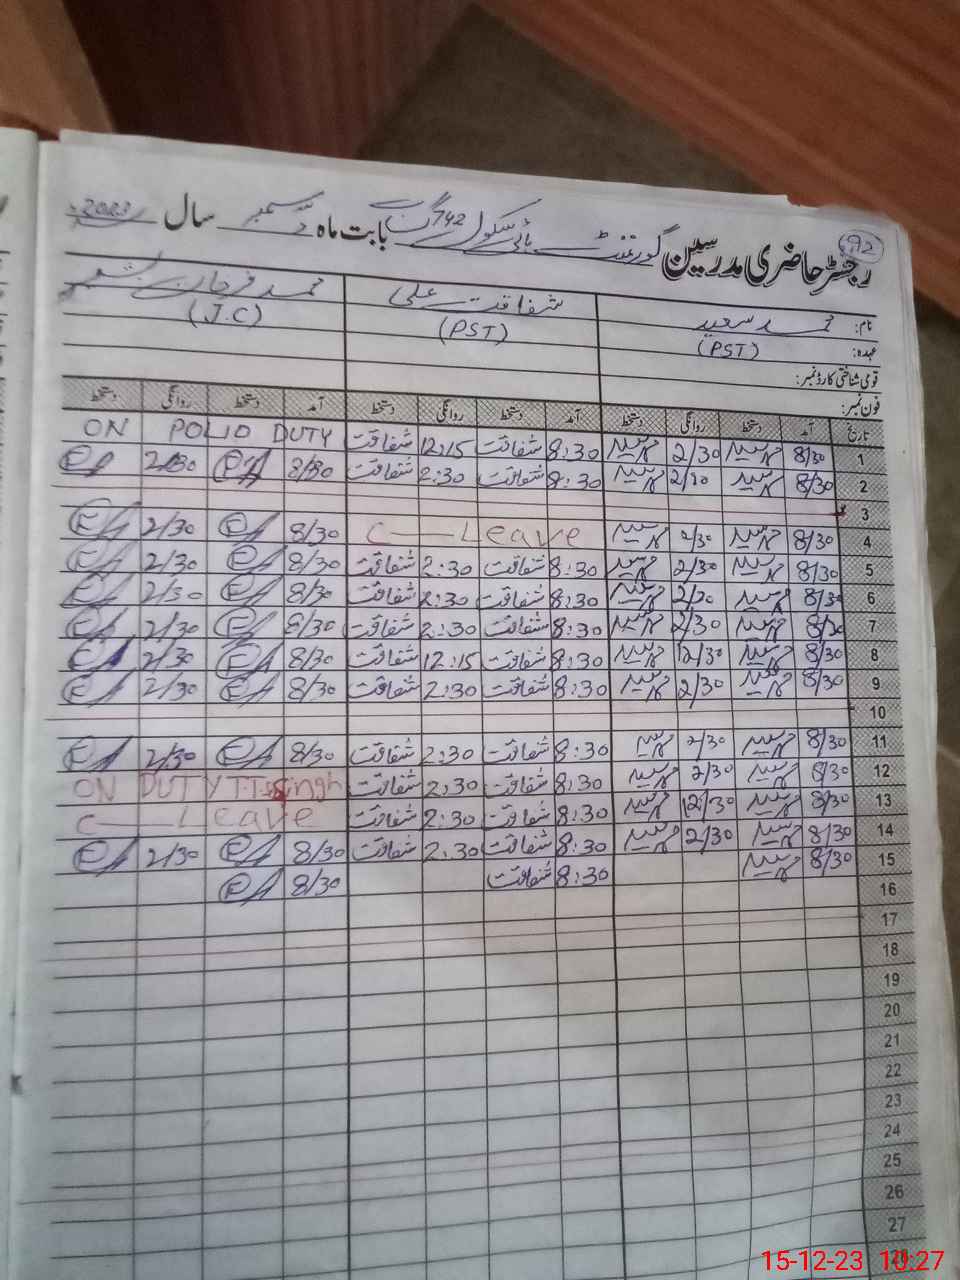 92
رجسٹر حاضری مدرسین گورنمنٹ ہائی سکول 742 گ ب بابت ماہ دسمبر سال 2023
نام: محمد سعید شفاقت علی محمد فرحان بشیر
عہدہ: (PST) (PST) (J.C)
قومی شناختی کارڈ نمبر:
فون نمبر:
تاریخ آمد دستخط روانگی دستخط آمد دستخط روانگی دستخط آمد دستخط روانگی دستخط
1 8/30 سعید 2/30 سعید 8:30 شفاقت 12:15 شفاقت ON POLIO DUTY
2 8/30 سعید 2/30 سعید 8:30 شفاقت 2:30 شفاقت 8/30 2/30
3
4 8/30 سعید 2/30 سعید C—Leave 8/30 2/30
5 8/30 سعید 2/30 سعید 8:30 شفاقت 2:30 شفاقت 8/30 2/30
6 8/30 سعید 2/30 سعید 8:30 شفاقت 2:30 شفاقت 8/30 2/30
7 8/30 سعید 2/30 سعید 8:30 شفاقت 2:30 شفاقت 8/30 2/30
8 8/30 سعید 12/30 سعید 8:30 شفاقت 12:15 شفاقت 8/30 2/30
9 8/30 سعید 2/30 سعید 8:30 شفاقت 2:30 شفاقت 8/30 2/30
10
11 8/30 سعید 2/30 سعید 8:30 شفاقت 2:30 شفاقت 8/30 2/30
12 8/30 سعید 2/30 سعید 8:30 شفاقت 2:30 شفاقت ON DUTY
13 8/30 سعید 12/30 سعید 8:30 شفاقت 2:30 شفاقت C—Leave
14 8/30 سعید 2/30 سعید 8:30 شفاقت 2:30 شفاقت 8/30 2/30
15 8/30 سعید 8:30 شفاقت 8/30
16
17
18
19
20
21
22
23
24
25
26
27
28
15-12-23 10:27